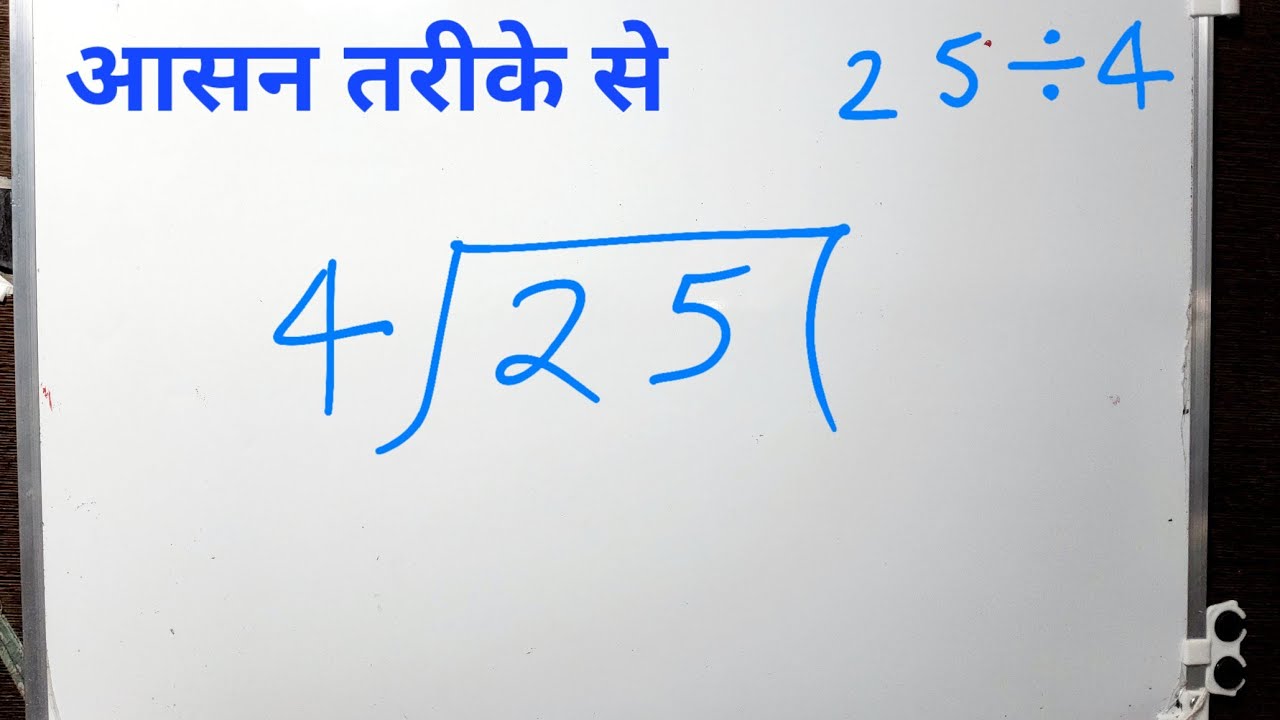 आसन तरीके से
25÷4
4)25(